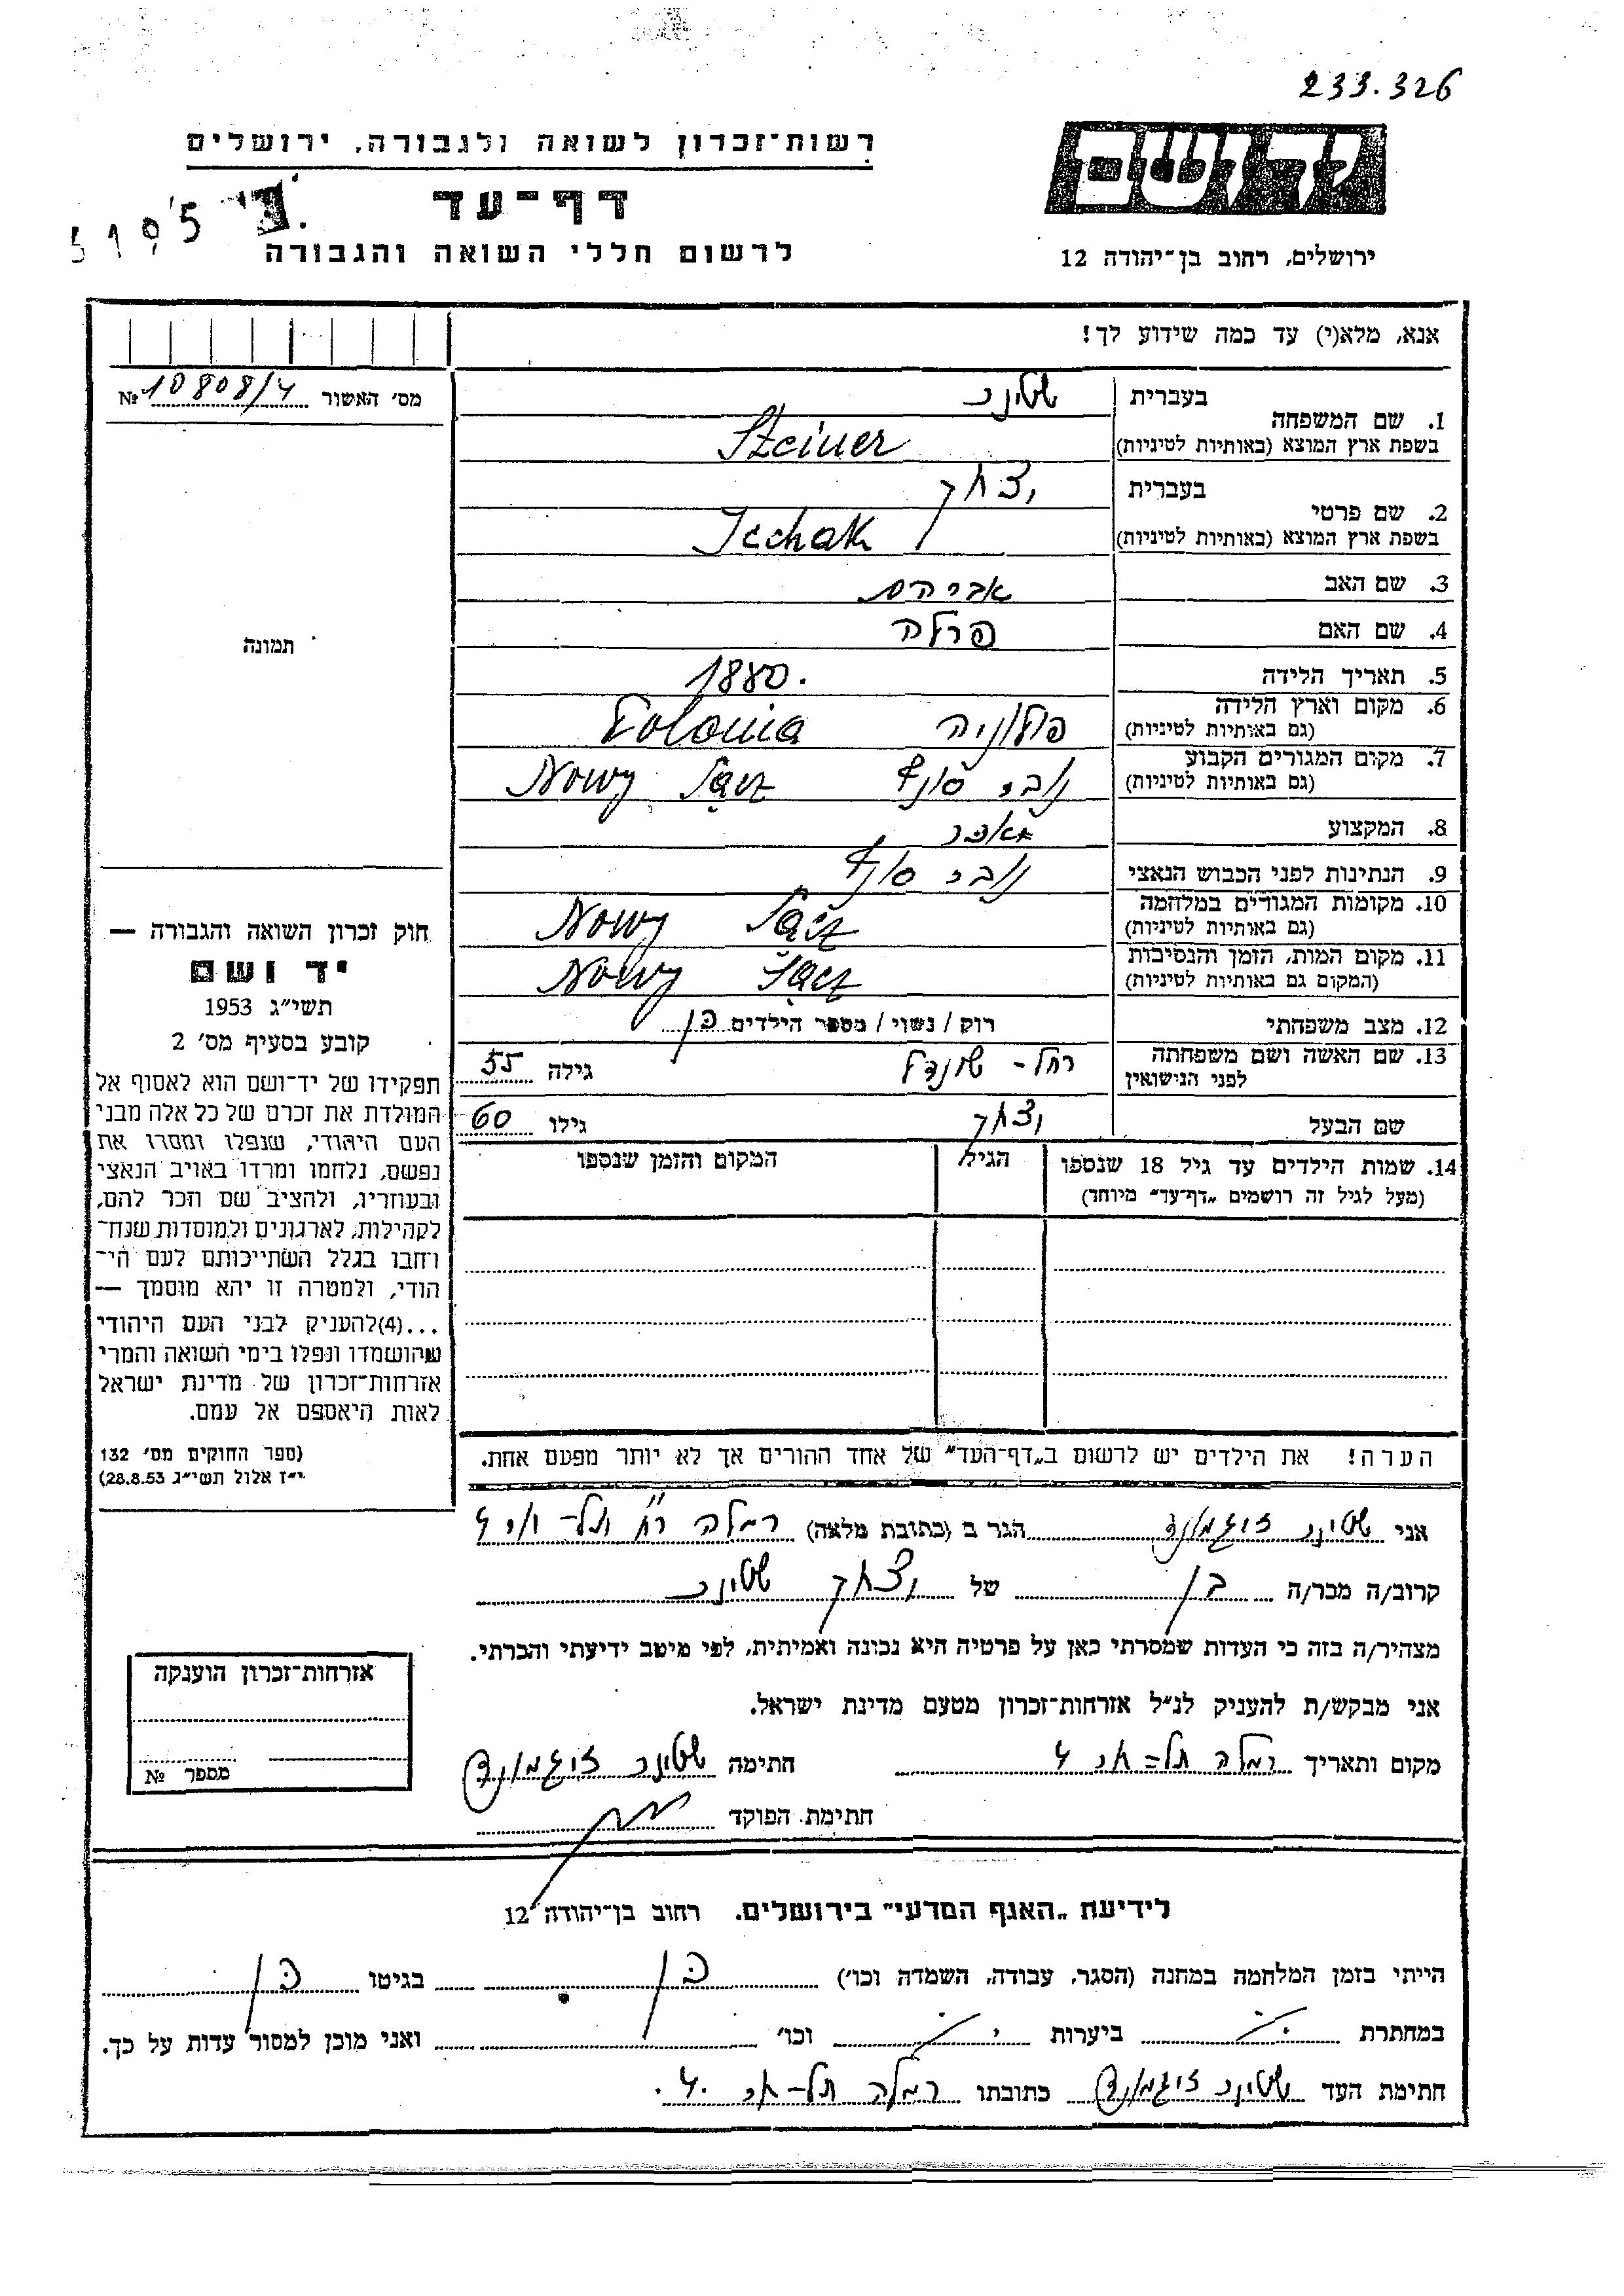 233.326
יד ושם
ירושלים, רחוב בן־יהודה 12
רשות־זכרון לשואה ולגבורה, ירושלים
דף־עד
לרשום חללי השואה והגבורה
אנא, מלא(י) עד כמה שידוע לך!
מס׳ האשור № 10808/4
1. שם המשפחה
בעברית שטינר
בשפת ארץ המוצא (באותיות לטיניות) Szteiner
2. שם פרטי
בעברית יצחק
בשפת ארץ המוצא (באותיות לטיניות) Icchak
3. שם האב אברהם
4. שם האם פרלה
5. תאריך הלידה 1880.
6. מקום וארץ הלידה פולוניה Polonia
(גם באותיות לטיניות)
7. מקום המגורים הקבוע נובי סונץ Nowy Sącz
(גם באותיות לטיניות)
8. המקצוע
9. הנתינות לפני הכבוש הנאצי נובי סונץ
10. מקומות המגורים במלחמה Nowy Sącz
(גם באותיות לטיניות)
11. מקום המות, הזמן והנסיבות Nowy Sącz
(המקום גם באותיות לטיניות)
12. מצב משפחתי רוק / נשוי / מספר הילדים כן
13. שם האשה ושם משפחתה רחל - גילה 55
לפני הנישואין
שם הבעל יצחק גילו 60
14. שמות הילדים עד גיל 18 שנספו הגיל המקום והזמן שנספו
(מעל לגיל זה רושמים „דף־עד״ מיוחד)
הערה! את הילדים יש לרשום ב„דף־העד״ של אחד ההורים אך לא יותר מפעם אחת.
תמונה
חוק זכרון השואה והגבורה —
יד ושם
תשי״ג 1953
קובע בסעיף מס׳ 2
תפקידו של יד־ושם הוא לאסוף אל
המולדת את זכרם של כל אלה מבני
העם היהודי, שנפלו ומסרו את
נפשם, נלחמו ומרדו באויב הנאצי
ובעוזריו, ולהציב שם וזכר להם,
לקהילות, לארגונים ולמוסדות שנח־
רחבו בגלל השתייכותם לעם הי־
הודי, ולמטרה זו יהא מוסמך —
...(4)להעניק לבני העם היהודי
שהושמדו ונפלו בימי השואה והמרי
אזרחות־זכרון של מדינת ישראל
לאות היאספם אל עמם.
(ספר החוקים מס׳ 132
י״ז אלול תשי״ג 28.8.53)
אני שטינר זיגמונד הגר ב (כתובת מלאה) רמלה
קרוב/ה מכר/ה בן של יצחק שטינר
מצהיר/ה בזה כי העדות שמסרתי כאן על פרטיה היא נכונה ואמיתית, לפי מיטב ידיעתי והכרתי.
אני מבקש/ת להעניק לנ״ל אזרחות־זכרון מטעם מדינת ישראל.
מקום ותאריך רמלה תל־חי 4 חתימה שטינר זיגמונד
חתימת הפוקד
אזרחות־זכרון הוענקה
מספר №
לידיעת „האגף המדעי״ בירושלים. רחוב בן־יהודה 12
הייתי בזמן המלחמה במחנה (הסגר, עבודה, השמדה וכו׳) כן בגיטו כן
במחתרת ביערות וכו׳ ואני מוכן למסור עדות על כך.
חתימת העד שטינר זיגמונד כתובתו רמלה תל-חי 4.